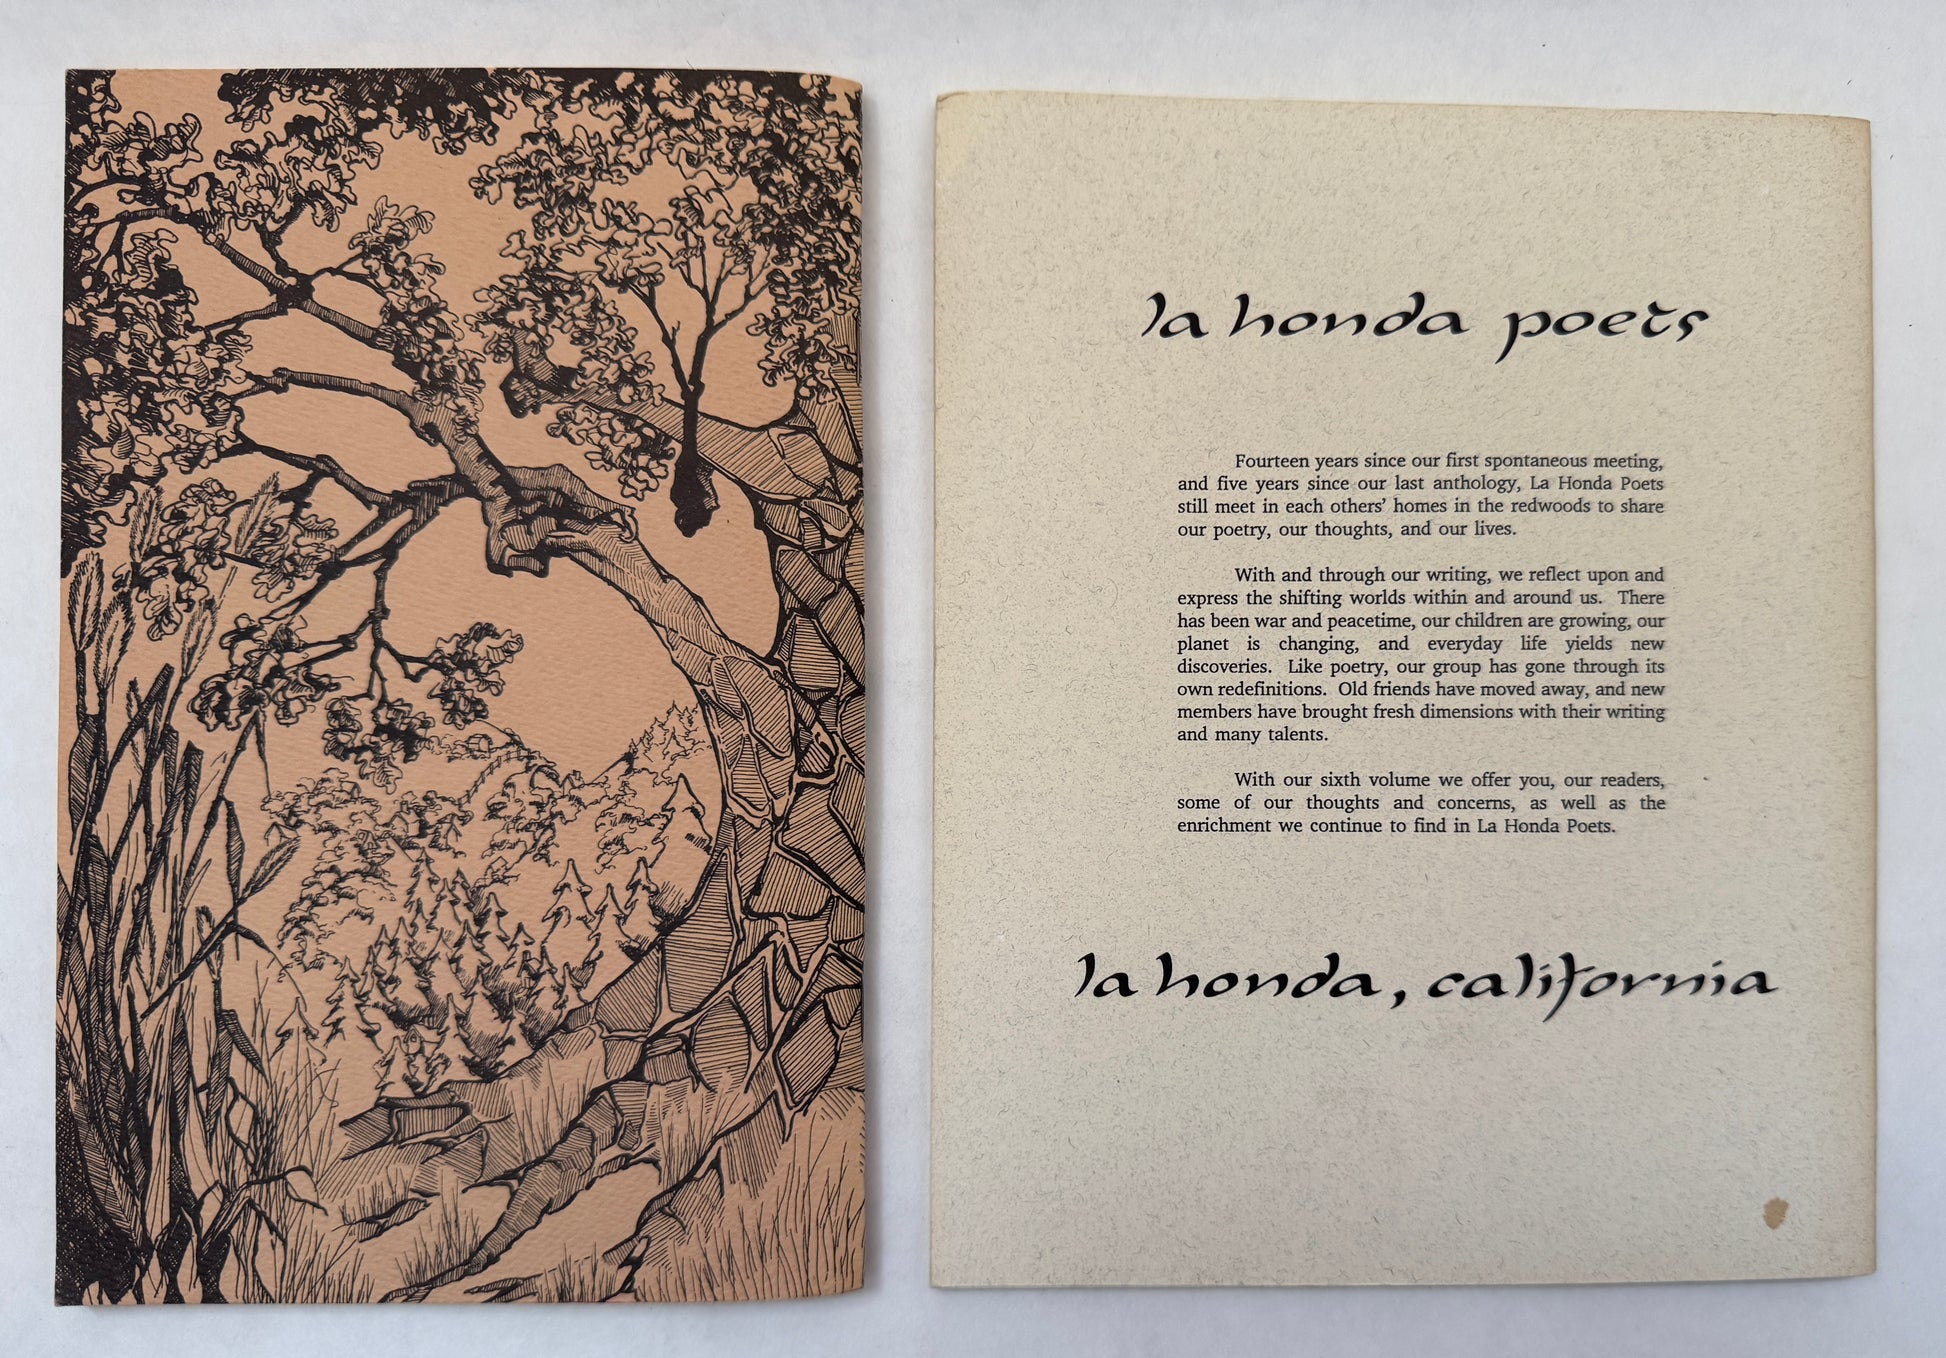 la honda poets
Fourteen years since our first spontaneous meeting,
and five years since our last anthology, La Honda Poets
still meet in each others' homes in the redwoods to share
our poetry, our thoughts, and our lives.
With and through our writing, we reflect upon and
express the shifting worlds within and around us. There
has been war and peacetime, our children are growing, our
planet is changing, and everyday life yields new
discoveries. Like poetry, our group has gone through its
own redefinitions. Old friends have moved away, and new
members have brought fresh dimensions with their writing
and many talents.
With our sixth volume we offer you, our readers,
some of our thoughts and concerns, as well as the
enrichment we continue to find in La Honda Poets.
la honda, california